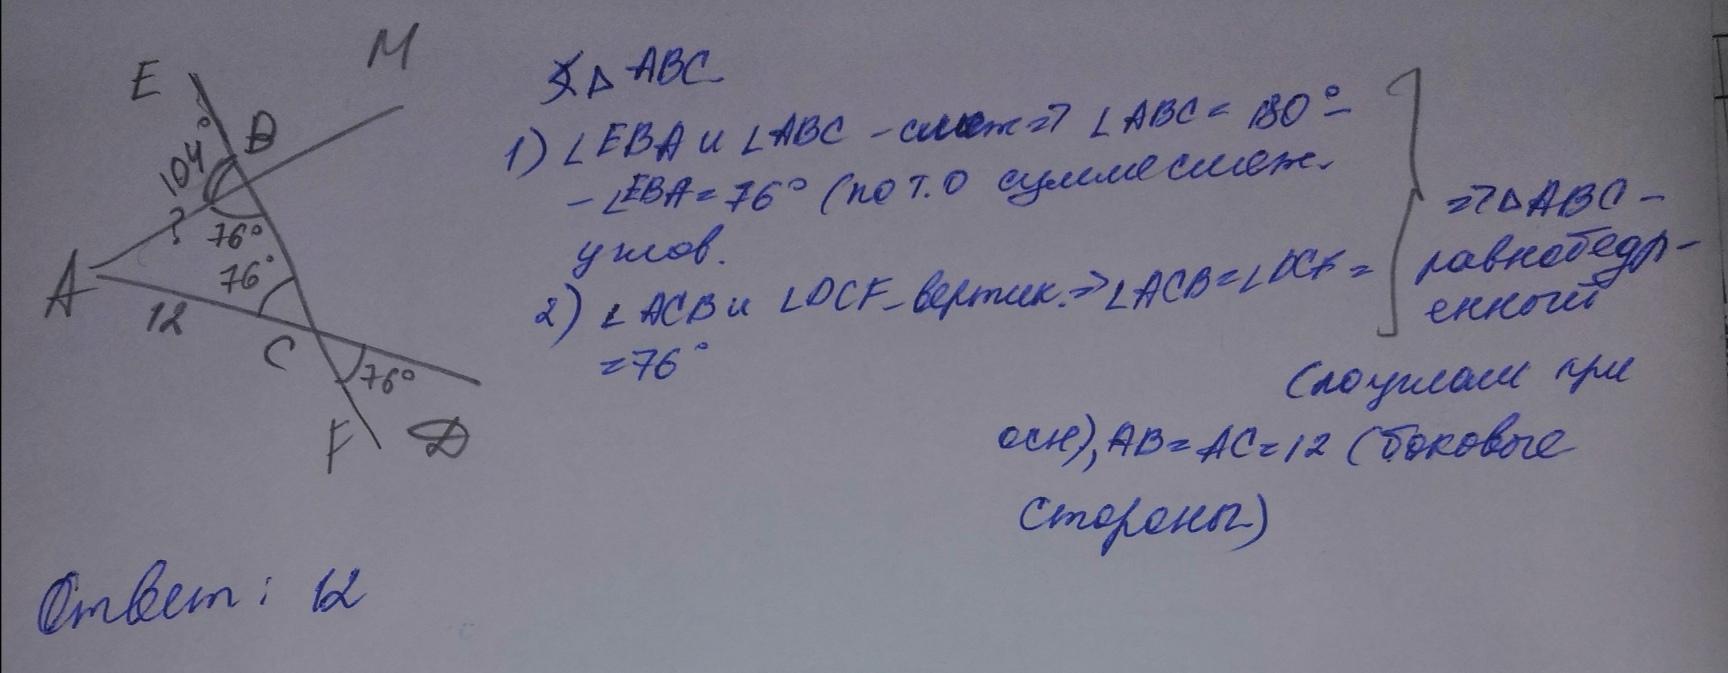 E
M
B
104°
?
76°
A
76°
12
C
76°
F
D
∆ ABC
1) ∠EBA и ∠ABC - смеж => ∠ABC = 180° -
- ∠EBA = 76° (по т. о сумме смеж.
углов.
2) ∠ACB и ∠DCF - вертик. => ∠ACB = ∠DCF =
= 76°
=> ∆ ABC -
равнобедр-
енный
(по углам при
осн), AB = AC = 12 (боковые
стороны)
Ответ: 12